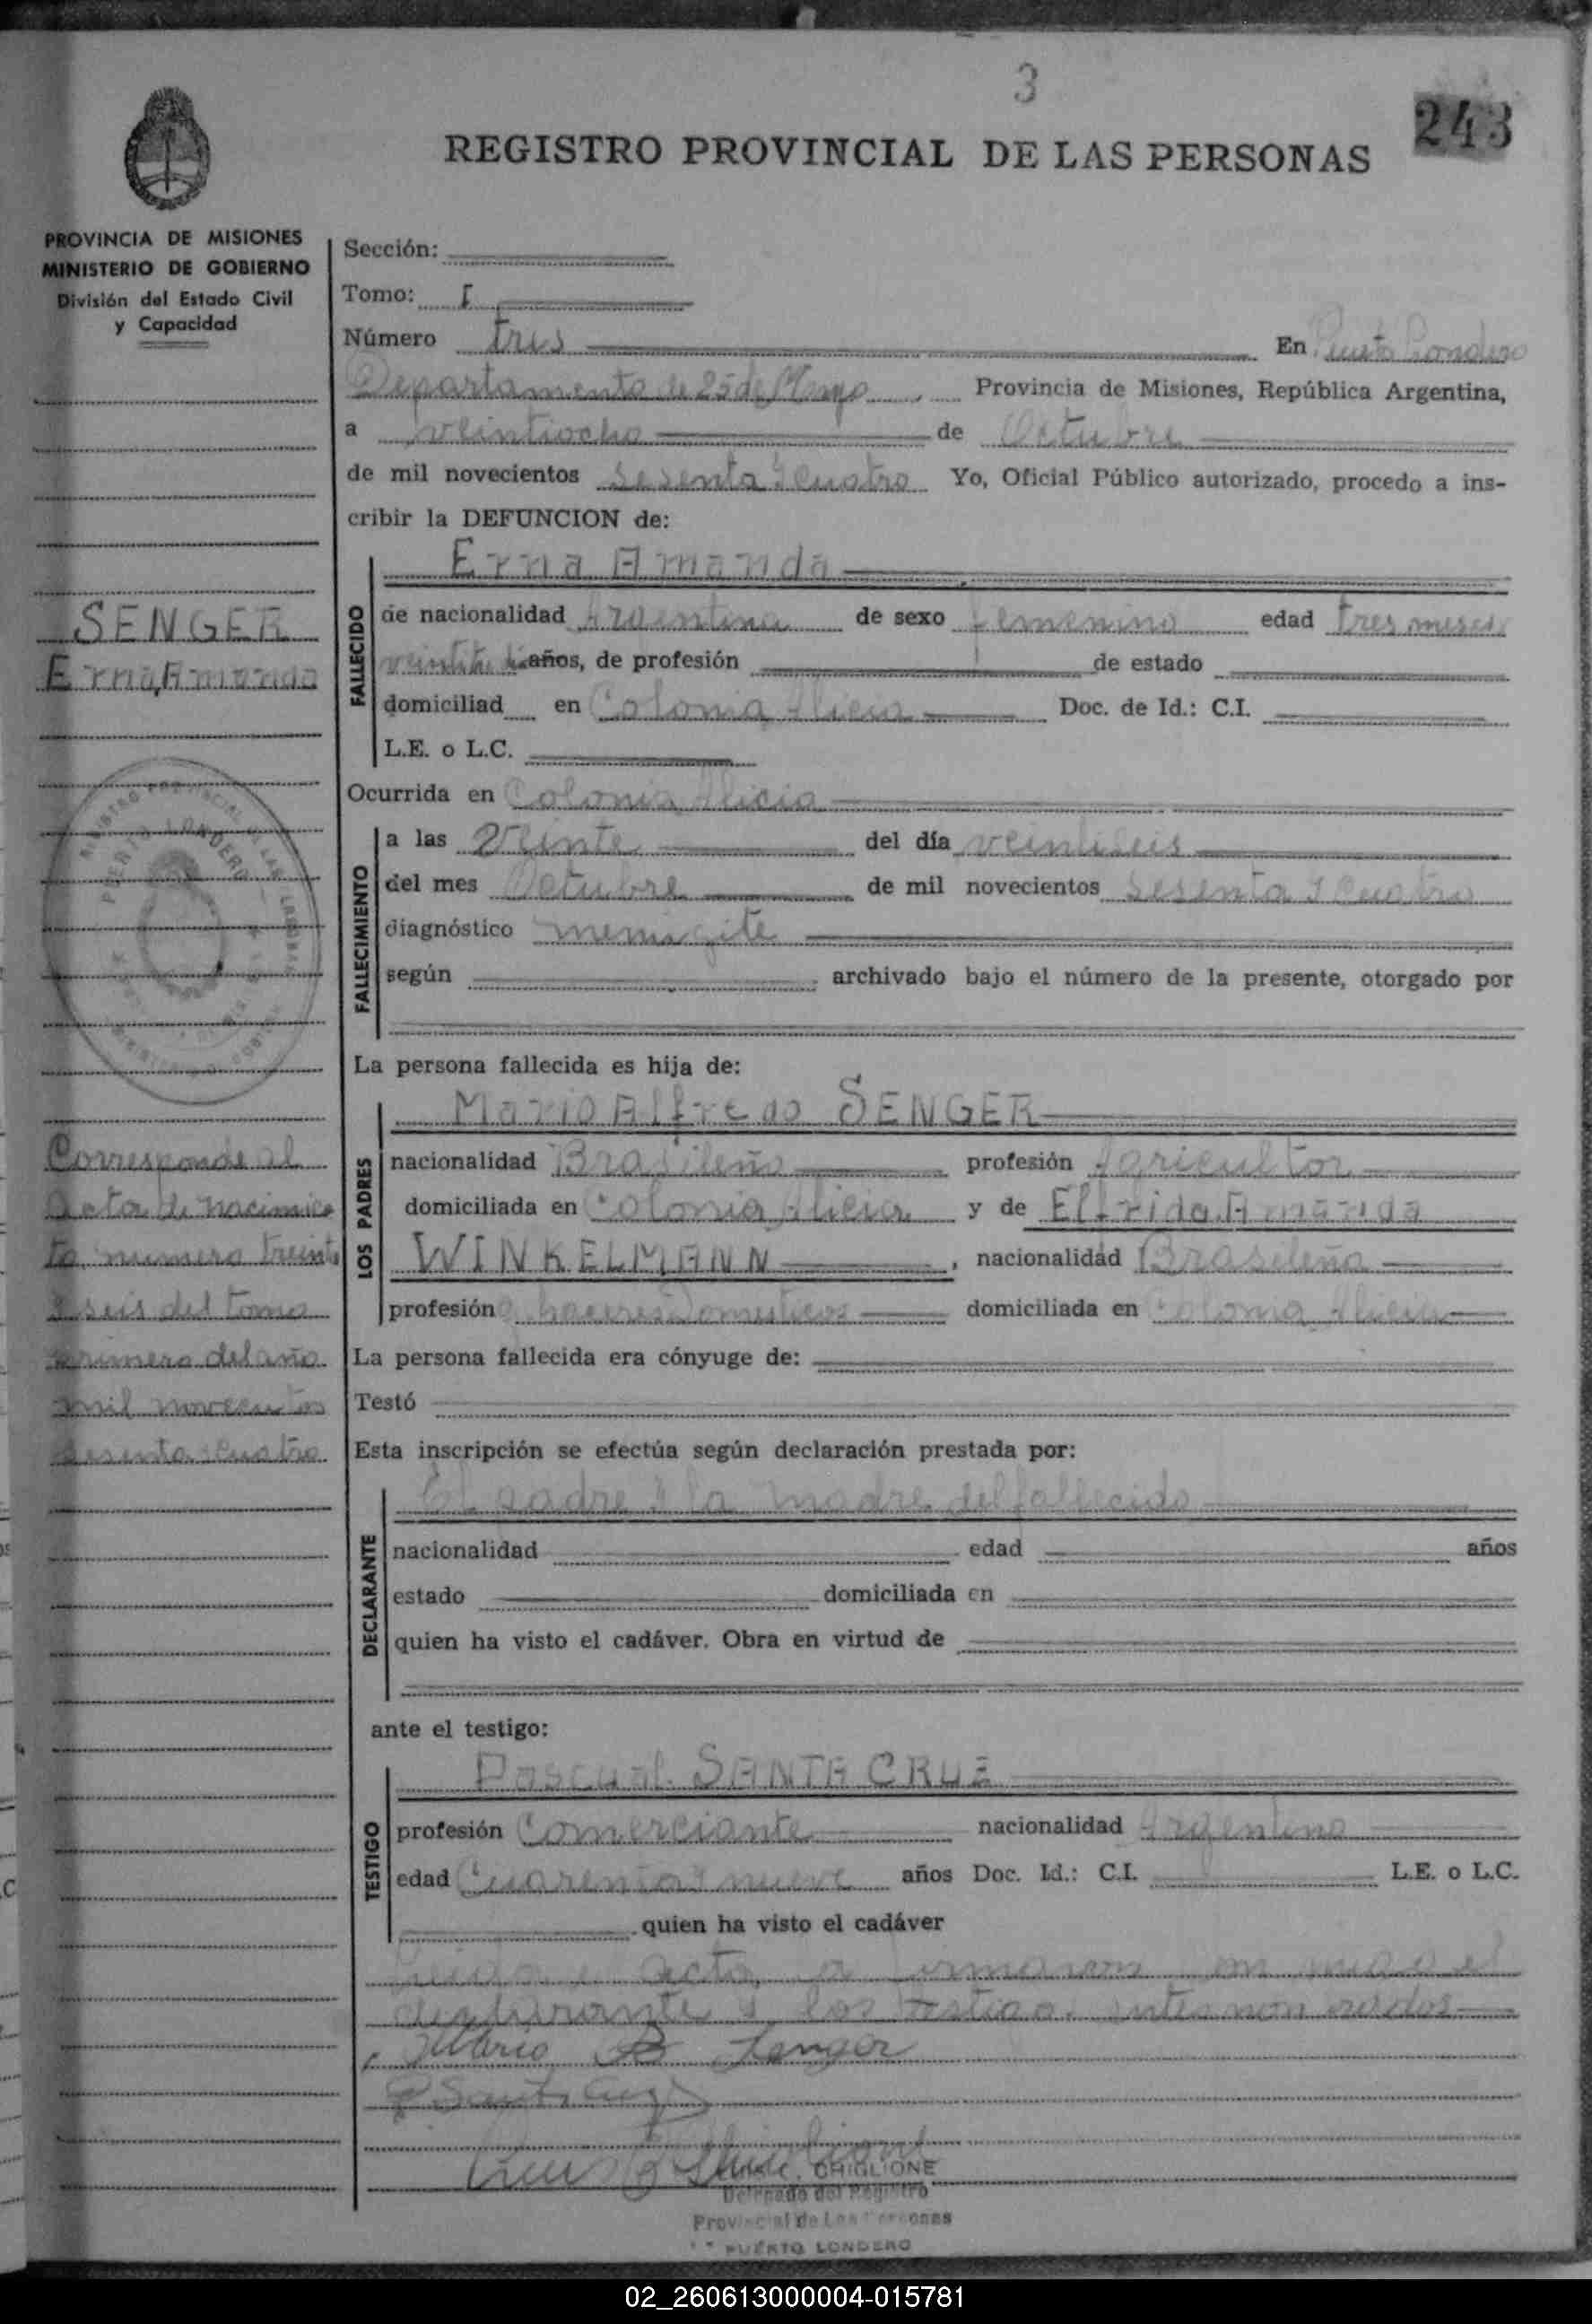 3
243
REGISTRO PROVINCIAL DE LAS PERSONAS
PROVINCIA DE MISIONES
MINISTERIO DE GOBIERNO
División del Estado Civil
y Capacidad
SENGER
Erna Amanda
Corresponde al
Acta de nacimien
to numero treinta
y seis del tomo
primero del año
mil novecientos
sesenta y cuatro
Sección:
Tomo: I
Número tres En Puerto Londero
Departamento de 25 de Mayo, Provincia de Misiones, República Argentina,
a veintiocho de Octubre
de mil novecientos sesenta y cuatro Yo, Oficial Público autorizado, procedo a ins-
cribir la DEFUNCION de:
FALLECIDO
Erna Amanda
de nacionalidad Argentina de sexo femenino edad tres meses
años, de profesión de estado
domiciliad en Colonia Alicia Doc. de Id.: C.I.
L.E. o L.C.
Ocurrida en Colonia Alicia
FALLECIMIENTO
a las Veinte del día veintiseis
del mes Octubre de mil novecientos sesenta y cuatro
diagnóstico meningite
según archivado bajo el número de la presente, otorgado por
La persona fallecida es hija de:
LOS PADRES
Mario Alfredo SENGER
nacionalidad Brasileño profesión Agricultor
domiciliada en Colonia Alicia y de Elfrida Amanda
WINKELMANN, nacionalidad Brasileña
profesión Q. haceres Domesticos domiciliada en Colonia Alicia
La persona fallecida era cónyuge de:
Testó
Esta inscripción se efectúa según declaración prestada por:
DECLARANTE
El padre y la madre del fallecido
nacionalidad edad años
estado domiciliada en
quien ha visto el cadáver. Obra en virtud de
ante el testigo:
TESTIGO
Pascual SANTA CRUZ
profesión Comerciante nacionalidad Argentino
edad Cuarenta y nueve años Doc. Id.: C.I. L.E. o L.C.
quien ha visto el cadáver
acta firmaron
declarante y los testigos
Mario A Senger
P Santa Cruz
GHIGLIONE
Delegado del Registro
Provincial de Las Personas
PUERTO LONDERO
02_260613000004-015781